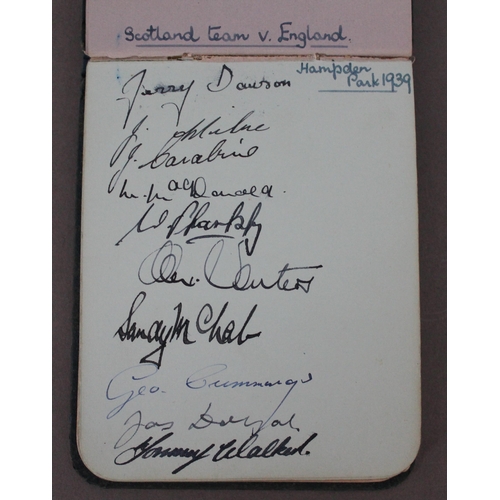 Scotland team v. England.
Hampden
Park 1939
Jerry Dawson
J. Milne
J. Carabine
M. MacDonald.
W Sharkly
Alex. Venters
Sandy McNab
Geo. Cummings
Jas Dougal
Tommy Walker.